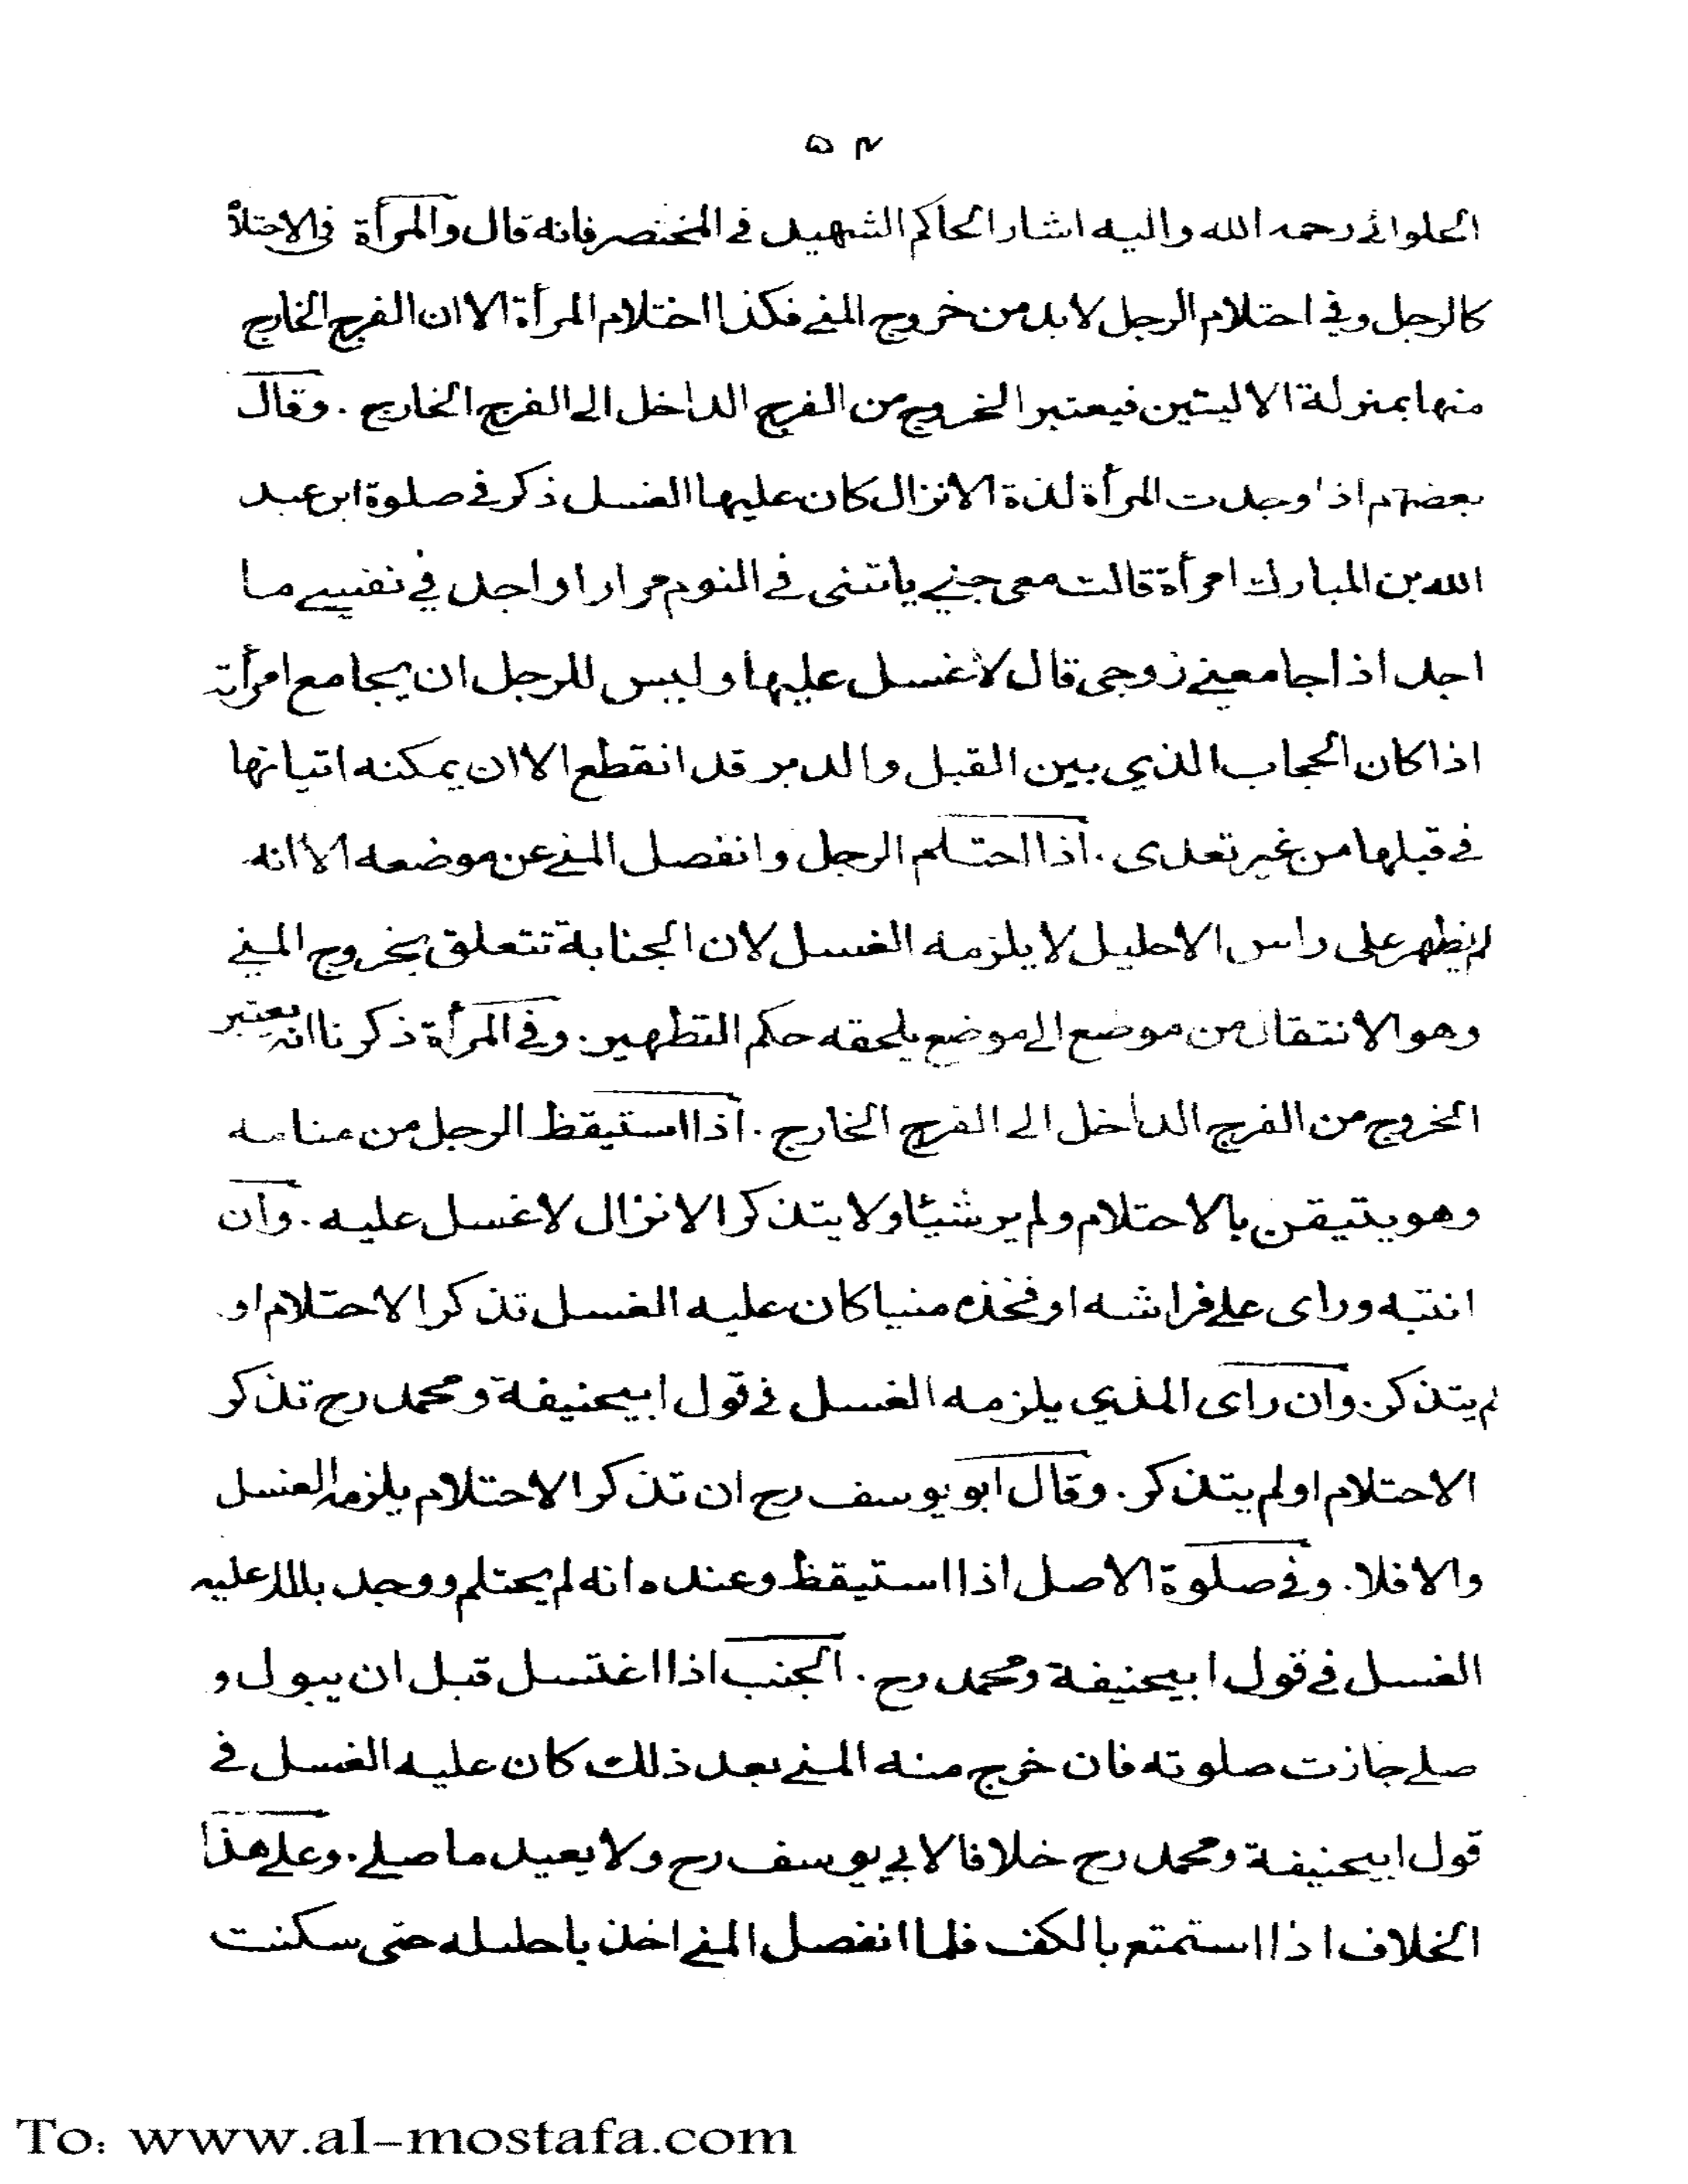 ۵۴
الحلوائے رحمه الله واليه اشار الحاكم الشهيد فے المختصر فانه قال والمرأة فى الاحتلام
كالرجل وفے احتلام الرجل لابد من خروج المنے فكذا احتلام المرأة الا ان الفرج الخارج
منها بمنزلة الاليتين فيعتبر الخروج من الفرج الداخل الى الفرج الخارج . وقال
بعضهم اذا وجدت المرأة لذة الانزال كان عليها الغسل ذكر فے صلوة ابن عبد
الله بن المبارك امرأة قالت معى جنے ياتنى فے النوم مرارا واجد فے نفسے ما
اجد اذا جامعنے زوجى قال لا غسل عليها وليس للرجل ان يجامع امرأته
اذا كان الحجاب الذي بين القبل والدبر قد انقطع الا ان يمكنه اتيانها
فے قبلها من غير تعدى . اذا احتلم الرجل وانفصل المنے عن موضعه الا انه
لم يظهر على راس الاحليل لا يلزمه الغسل لان الجنابة تتعلق بخروج المنے
وهو الانتقال من موضع الى موضع يلحقه حكم التطهير . وفے المرأة ذكرنا انه يعتبر
الخروج من الفرج الداخل الى الفرج الخارج . اذا استيقظ الرجل من منامه
وهو يتيقن بالاحتلام ولم ير شيئا ولا يتذكر الانزال لا غسل عليه . وان
انتبه وراى علے فراشه او فخذه منيا كان عليه الغسل تذكر الاحتلام او
لم يتذكر . وان راى المذي يلزمه الغسل فے قول ابيحنيفة ومحمد رح تذكر
الاحتلام او لم يتذكر . وقال ابو يوسف رح ان تذكر الاحتلام يلزمه الغسل
والا فلا . وفے صلوة الاصل اذا استيقظ وعنده انه لم يحتلم ووجد بللا عليه
الغسل فے قول ابيحنيفة ومحمد رح . الجنب اذا اغتسل قبل ان يبول و
صلے جازت صلوته فان خرج منه المنے بعد ذلك كان عليه الغسل فے
قول ابيحنيفة ومحمد رح خلافا لابي يوسف رح ولا يعيد ما صلے . وعلے هذا
الخلاف اذا استمتع بالكف فلما انفصل المنے اخذ باحليله حتى سكنت
To: www.al-mostafa.com